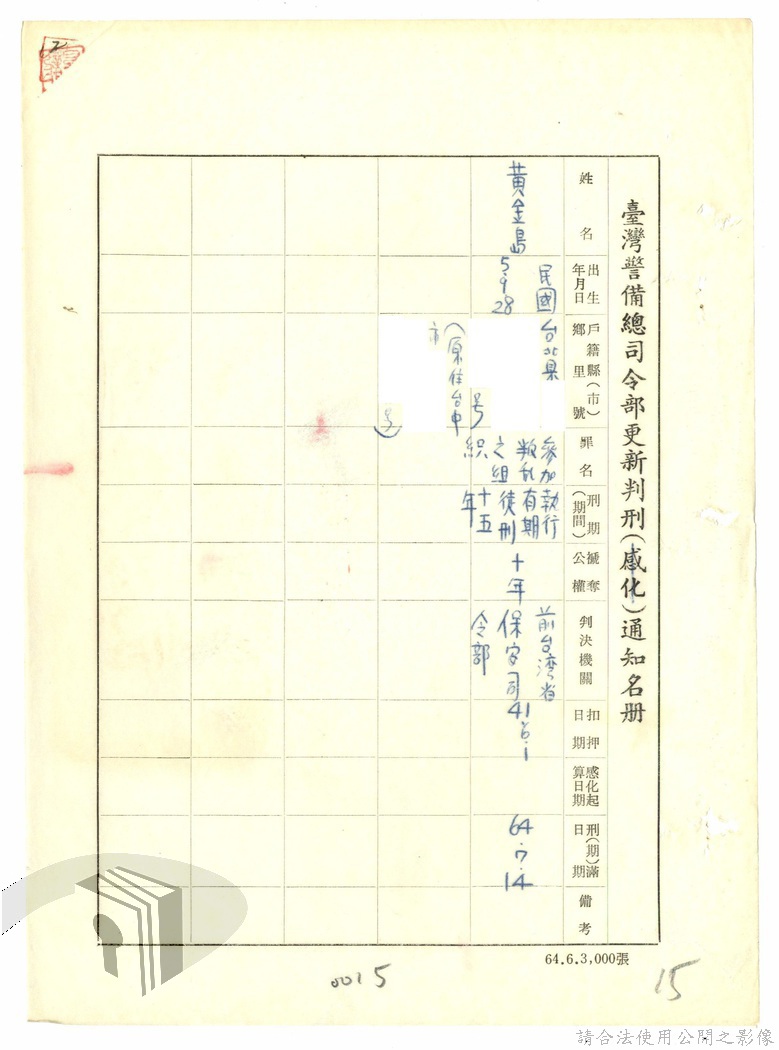 2
臺灣警備總司令部更新判刑(感化)通知名册
姓名
出生年月日
戶籍縣(市)鄉里號
罪名
刑期(期間)
褫奪公權
判決機關
扣押日期
感化起算日期
刑(期)滿日期
備考
黃金島
民國
5.9.28
台北県
号
(原住台中
市
号)
參加
叛乱
之組
織
執行
有期
徒刑
十五
年
十年
前台湾省
保安司
令部
41.6.1
64.7.14
64.6.3,000張
0015
15
請合法使用公開之影像